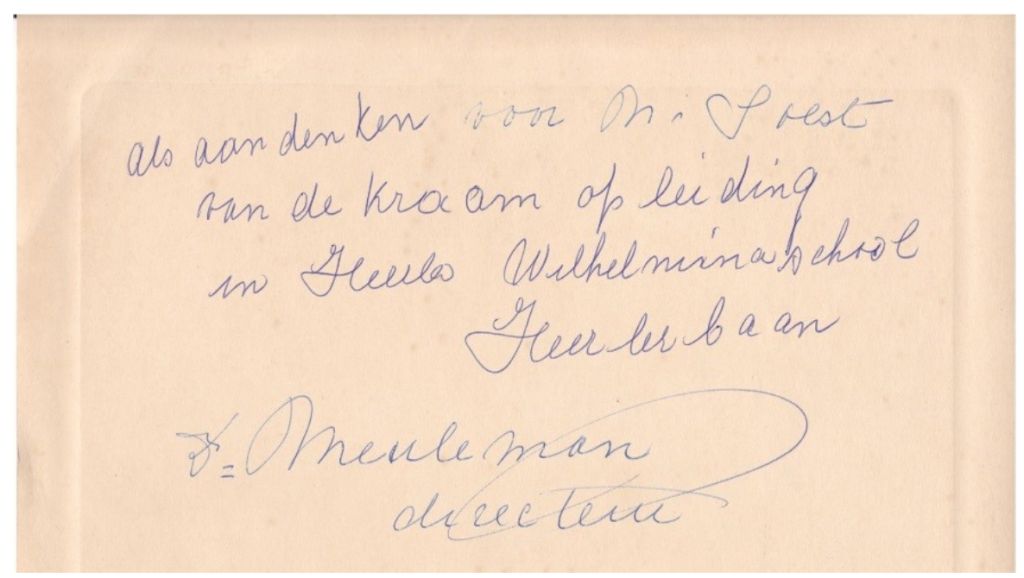 als aandenken voor M. Soest
van de kraam opleiding
in Wilhelmina school
Heerlerbaan
Dr= Meuleman
directeur